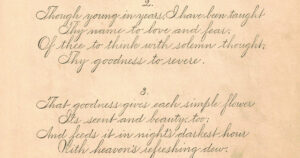 2.
Though young in years, I have been taught
Thy name to love and fear.
Of thee to think with solemn thought;
Thy goodness to revere.
3.
That goodness gives each simple flower
It's scent and beauty, too;
And feeds it in night's darkest hour
With heaven's refreshing dew;